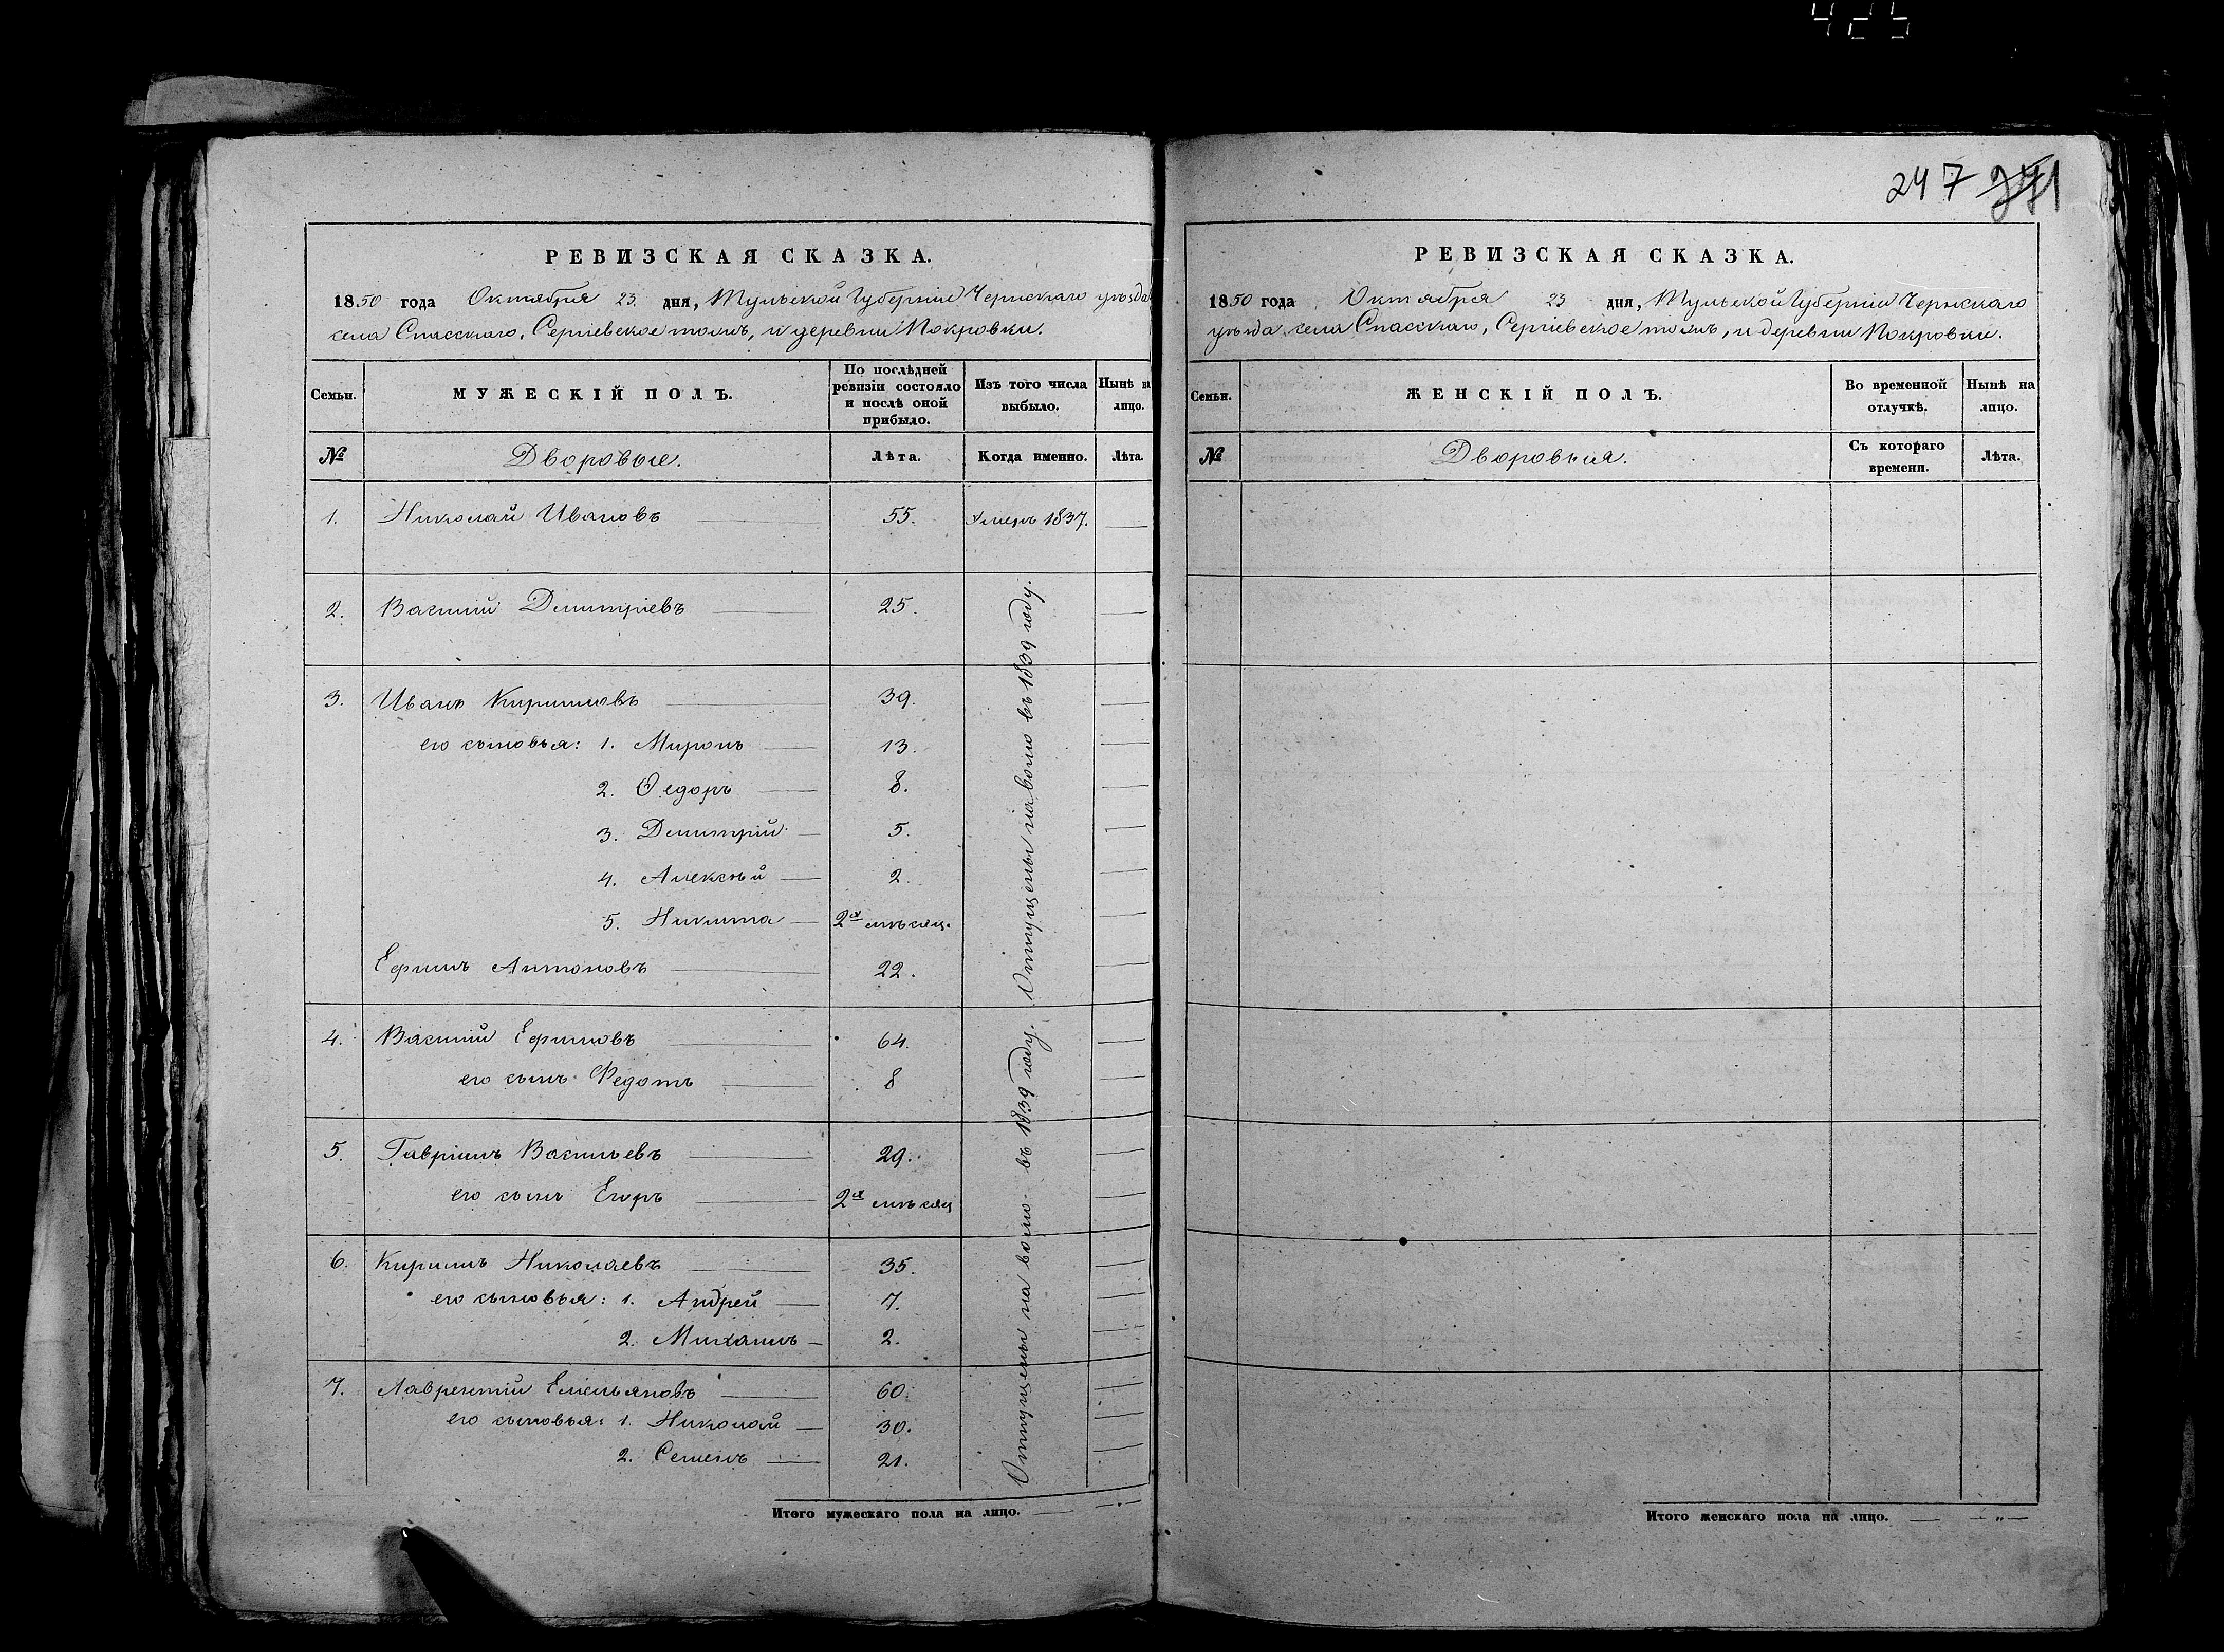 425
247 271
РЕВИЗСКАЯ СКАЗКА.
1850 года Октября 23 дня, Тульской Губерніи Чернскаго уѣзда
села Спасскаго, Сергіевское тожъ, и деревни Покровки.
Семьи. МУЖЕСКІЙ ПОЛЪ. По послѣдней ревизіи состояло и послѣ оной прибыло. Изъ того числа выбыло. Нынѣ на лицо.
№ Дворовые. Лѣта. Когда именно. Лѣта.
1. Николай Ивановъ 55. Умеръ 1837.
2. Василій Димитріевъ 25.
3. Иванъ Кириловъ 39.
его сыновья: 1. Миронъ 13.
2. Ѳедоръ 8.
3. Димитрій 5.
4. Алексѣй 2.
5. Никита 2хъ мѣсяц.
Ефимъ Антоновъ 22.
Отпущены на волю въ 1839 году.
4. Василій Ефимовъ 64.
его сынъ Федотъ 8
5. Гавріилъ Васильевъ 29.
его сынъ Егоръ 2хъ мѣсяц
6. Кирилъ Николаевъ 35.
его сыновья: 1. Андрей 7.
2. Михаилъ 2.
7. Лаврентій Емельяновъ 60.
его сыновья: 1. Николай 30.
2. Семенъ 21.
Отпущены на волю въ 1839 году.
Итого мужескаго пола на лицо.
РЕВИЗСКАЯ СКАЗКА.
1850 года Октября 23 дня, Тульской Губерніи Чернскаго
уѣзда села Спасскаго, Сергіевское тожъ, и деревни Покровки.
Семьи. ЖЕНСКІЙ ПОЛЪ. Во временной отлучкѣ. Нынѣ на лицо.
№ Дворовыя. Съ котораго времени. Лѣта.
Итого женскаго пола на лицо. „